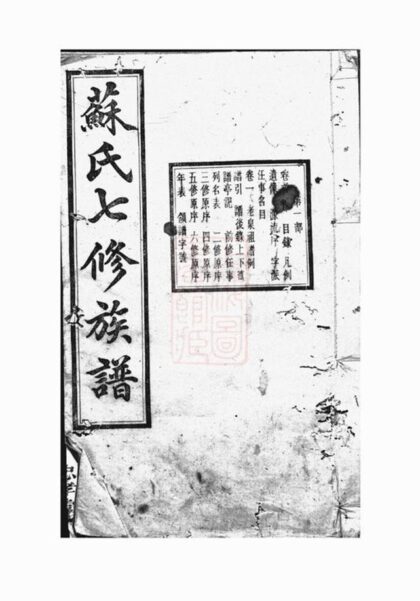 蘇氏七修族譜
第一部
目錄 凡例
遺像 源流序 字派
任事名目
卷一 老泉祖書例
譜引 譜後錄上下篇
譜亭記 前修任事
列名表 二修原序
三修原序 四修原序
五修原序 六修原序
年表 領譜字號